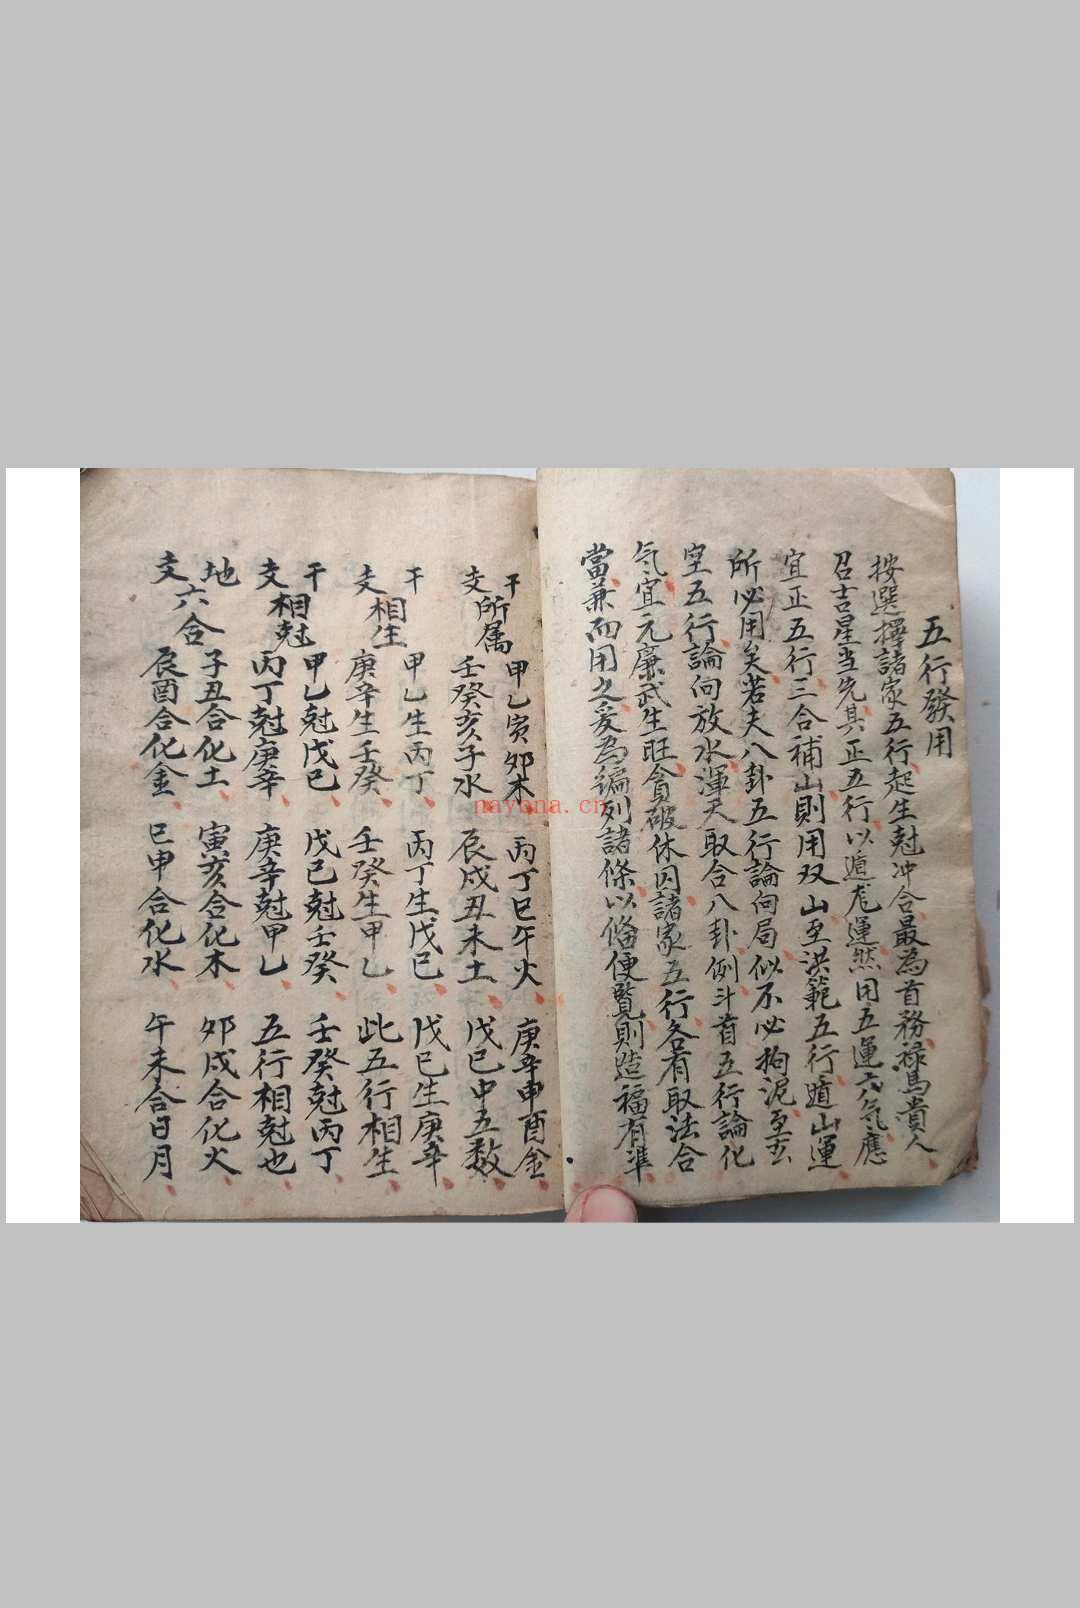 五行發用
按選擇諸家五行起生尅冲合最為首務禄馬貴人
召吉星当先其正五行以遁竜運然用五運六氣應
宜正五行三合補山則用双山至洪範五行遁山運
所必用矣若夫八卦五行論向局似不必拘泥至玄
空五行論向放水渾天取合八卦例斗首五行論化
氣宜元廉武生旺貪破休囚諸家五行各有取法合
當兼而用之爰為編列諸條以俻便覽則造福有準
干支所属
甲乙寅夘木 丙丁巳午火 庚辛申酉金
壬癸亥子水 辰戍丑未土 戊己中五数
干支相生
甲乙生丙丁 丙丁生戊己 戊己生庚辛
庚辛生壬癸 壬癸生甲乙 此五行相生
干支相尅
甲乙尅戊己 戊己尅壬癸 壬癸尅丙丁
丙丁尅庚辛 庚辛尅甲乙 五行相尅也
地支六合
子丑合化土 寅亥合化木 夘戍合化火
辰酉合化金 巳申合化水 午未合日月
nayona.cn